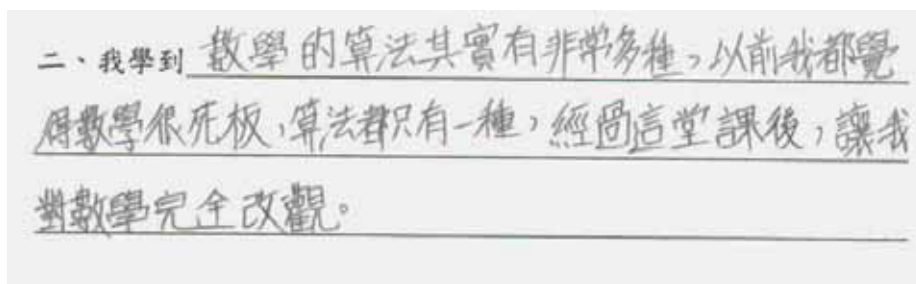 二、我學到 數學的算法其實有非常多種,以前我都覺
得數學很死板,算法都只有一種,經過這堂課後,讓我
對數學完全改觀。